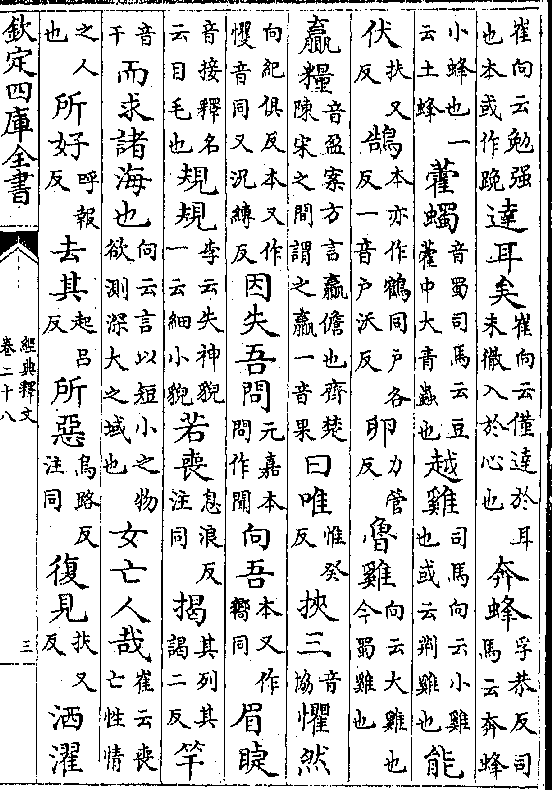 崔向云勉强也本或作跪達耳矣崔向云僅達於耳未徹入於心也奔蜂孚恭反司馬云奔蜂
小蜂也一云土蜂藿蠋音蜀司馬云豆藿中大青蟲也越雞司馬向云小雞也或云荆雞也能
伏扶又反鵠本亦作鶴同户各反一音户沃反卵力管反魯雞向云大雞也今蜀雞也
贏糧音盈案方言贏儋也齊楚陳宋之間謂之贏一音果曰唯惟癸反挾三音協懼然
向紀俱反本又作戄音同又況縛反因失吾問元嘉本問作聞向吾本又作嚮同眉睫
音接釋名云目毛也規規李云失神貌一云細小貌若喪息浪反注同揭其列其謁二反竿
音干而求諸海也向云言以短小之物欲測深大之域也女亡人哉崔云喪亡性情
之人也所好呼報反去其起吕反所惡烏路反注同復見扶又反洒濯
欽定四庫全書
經典釋文
卷二十八
三